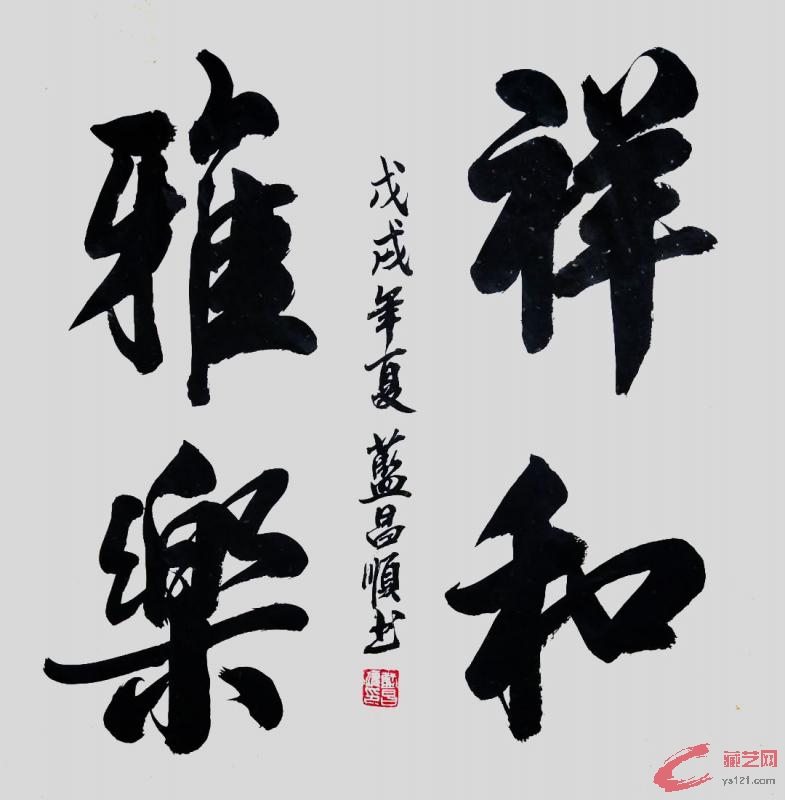 祥和
雅樂
戊戌年夏 藍昌順书
藏艺网
ys121.com